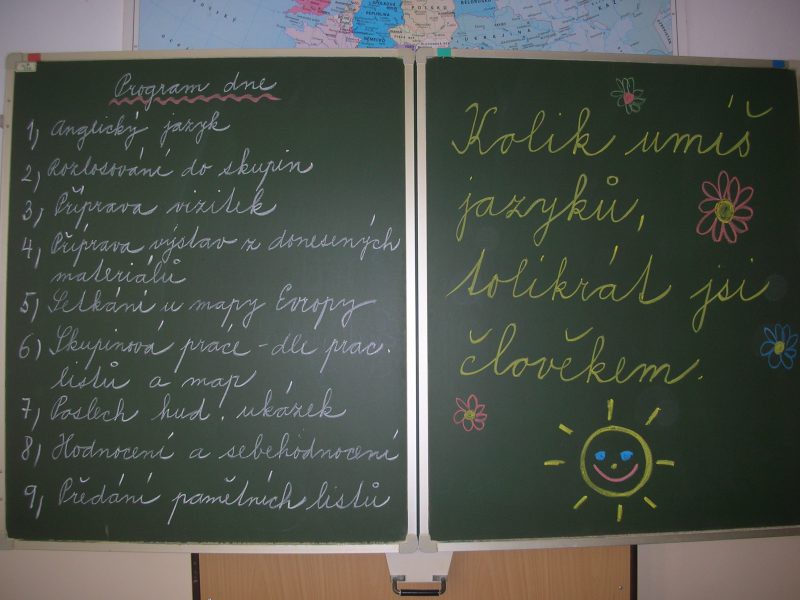 Program dne
1, Anglický jazyk
2, Rozlosování do skupin
3, Příprava vizitek
4, Příprava výstav z donesených
materiálů
5) Setkání u mapy Evropy
6) Skupinová práce - dle prac.
listů a map
7, Poslech hud. ukázek
8) Hodnocení a sebehodnocení
9, Předání pamětních listů
Kolik umíš
jazyků,
tolikrát jsi
člověkem.
POLSKO
UKRAJINA